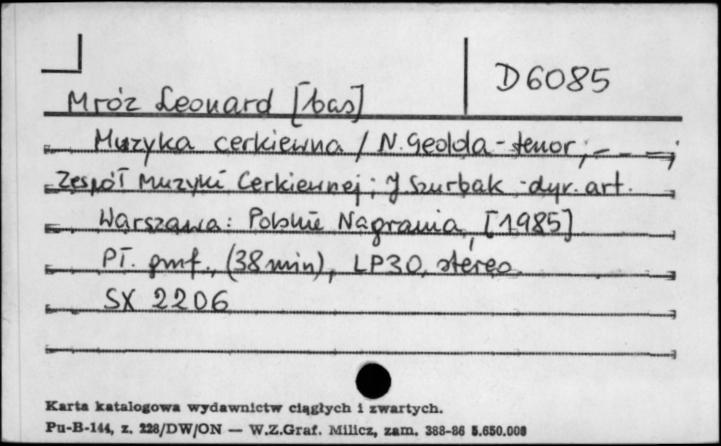 D6085
Mróz Leonard [bas]
Muzyka cerkiewna / N. Gedda - tenor, - - - ;
Zespół Muzyki Cerkiewnej ; J Szurbak - dyr. art.
Warszawa : Polskie Nagrania, [1985]
Pł. gmf., (38 min), LP30, stereo
SX 2206
Karta katalogowa wydawnictw ciągłych i zwartych.
Pu-B-144, z. 228/DW/ON — W.Z.Graf. Milicz, zam. 388-86 5.650.000